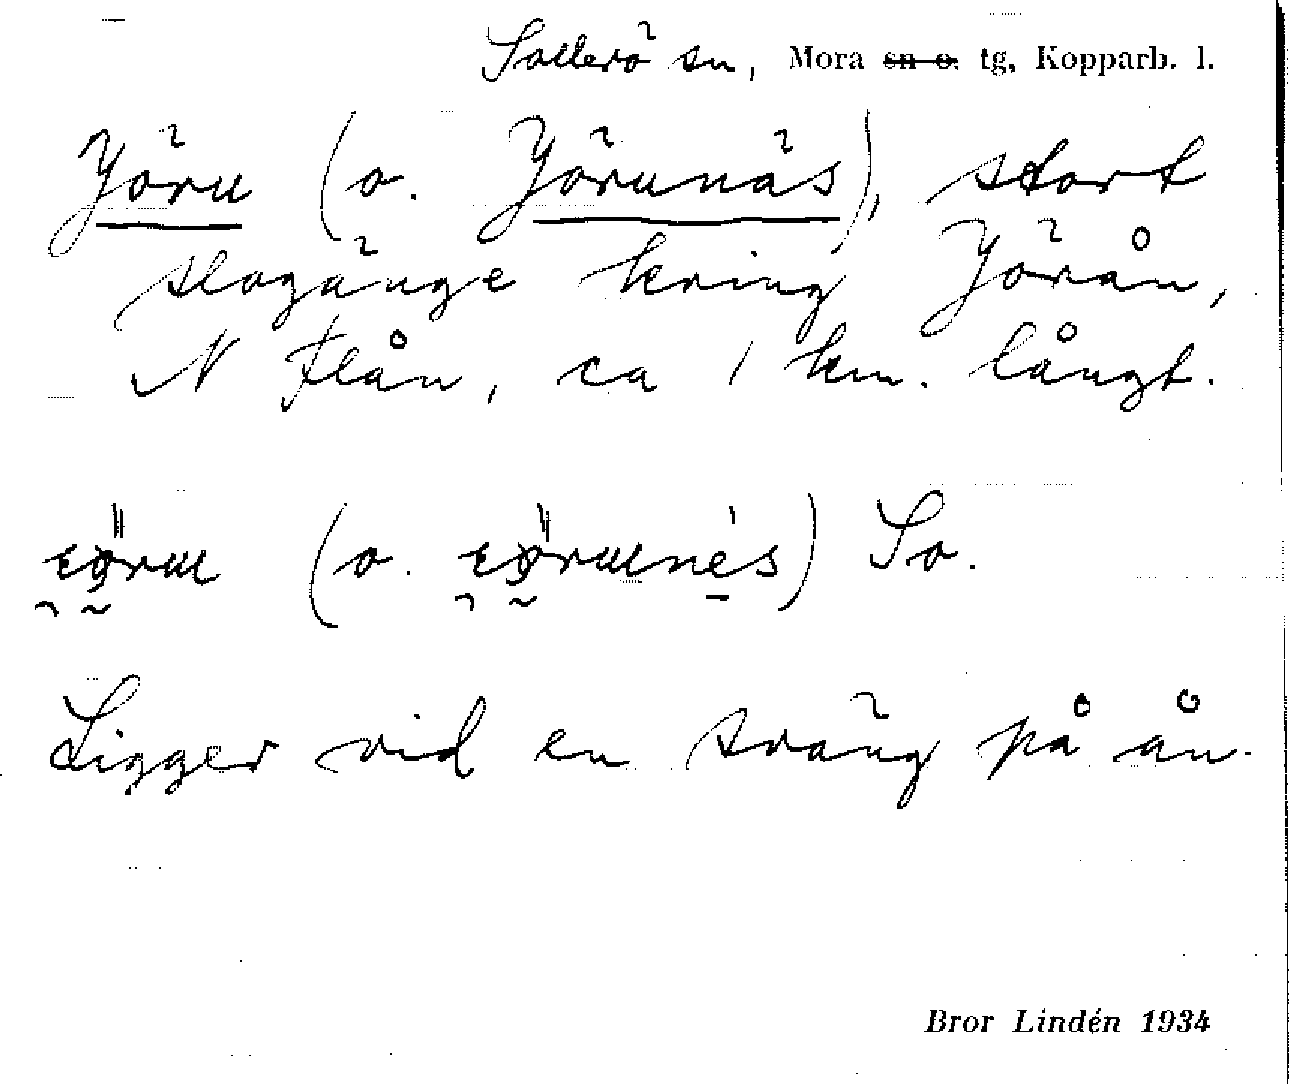 Sollerö sn, Mora sn o. tg, Kopparb. l.
Yöru (o. Yörunäs), stort
slogänge kring Yörån,
N Flån, ca 1 km. långt.
(o. ) So.
Ligger vid en sväng på ån.
Bror Lindén 1934